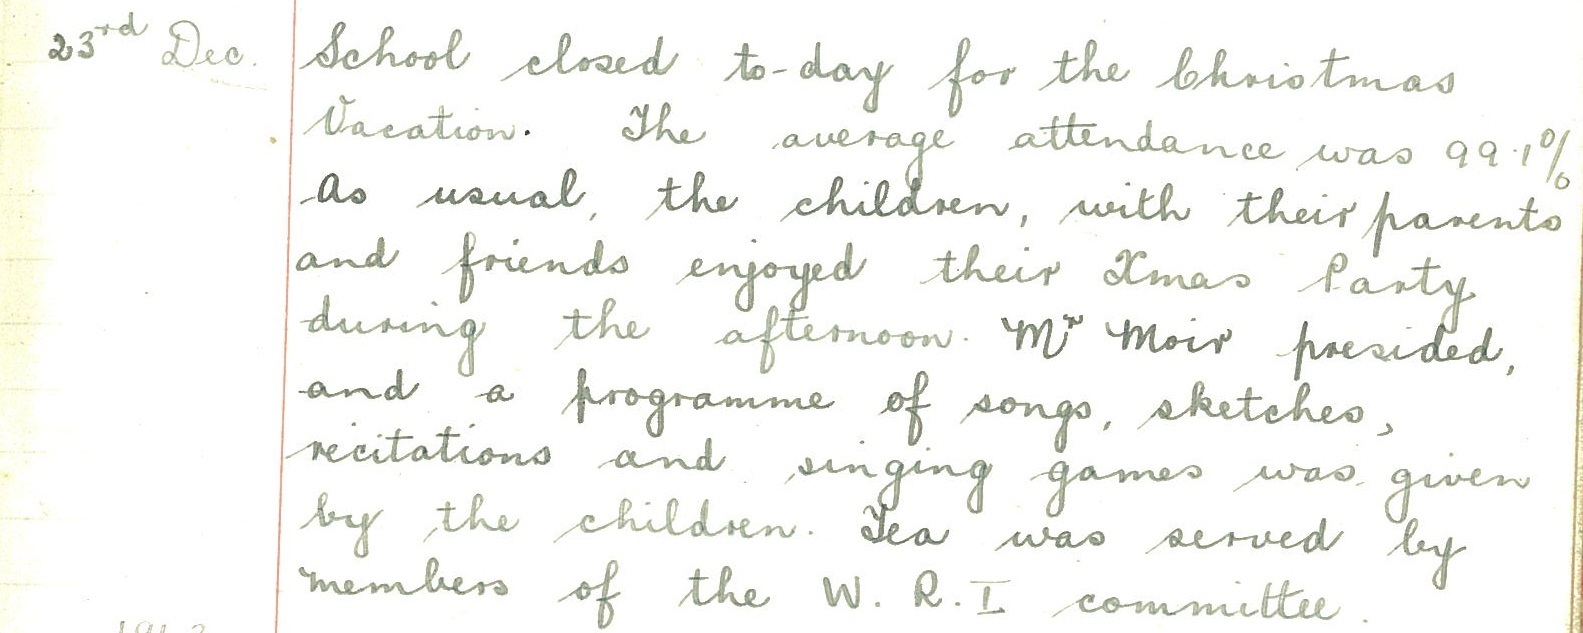 23rd Dec. School closed to-day for the Christmas
Vacation. The average attendance was 99.1%
As usual, the children, with their parents
and friends enjoyed their Xmas Party
during the afternoon. Mr Moir presided,
and a programme of songs, sketches,
recitations and singing games was given
by the children. Tea was served by
members of the W. R. I committee.